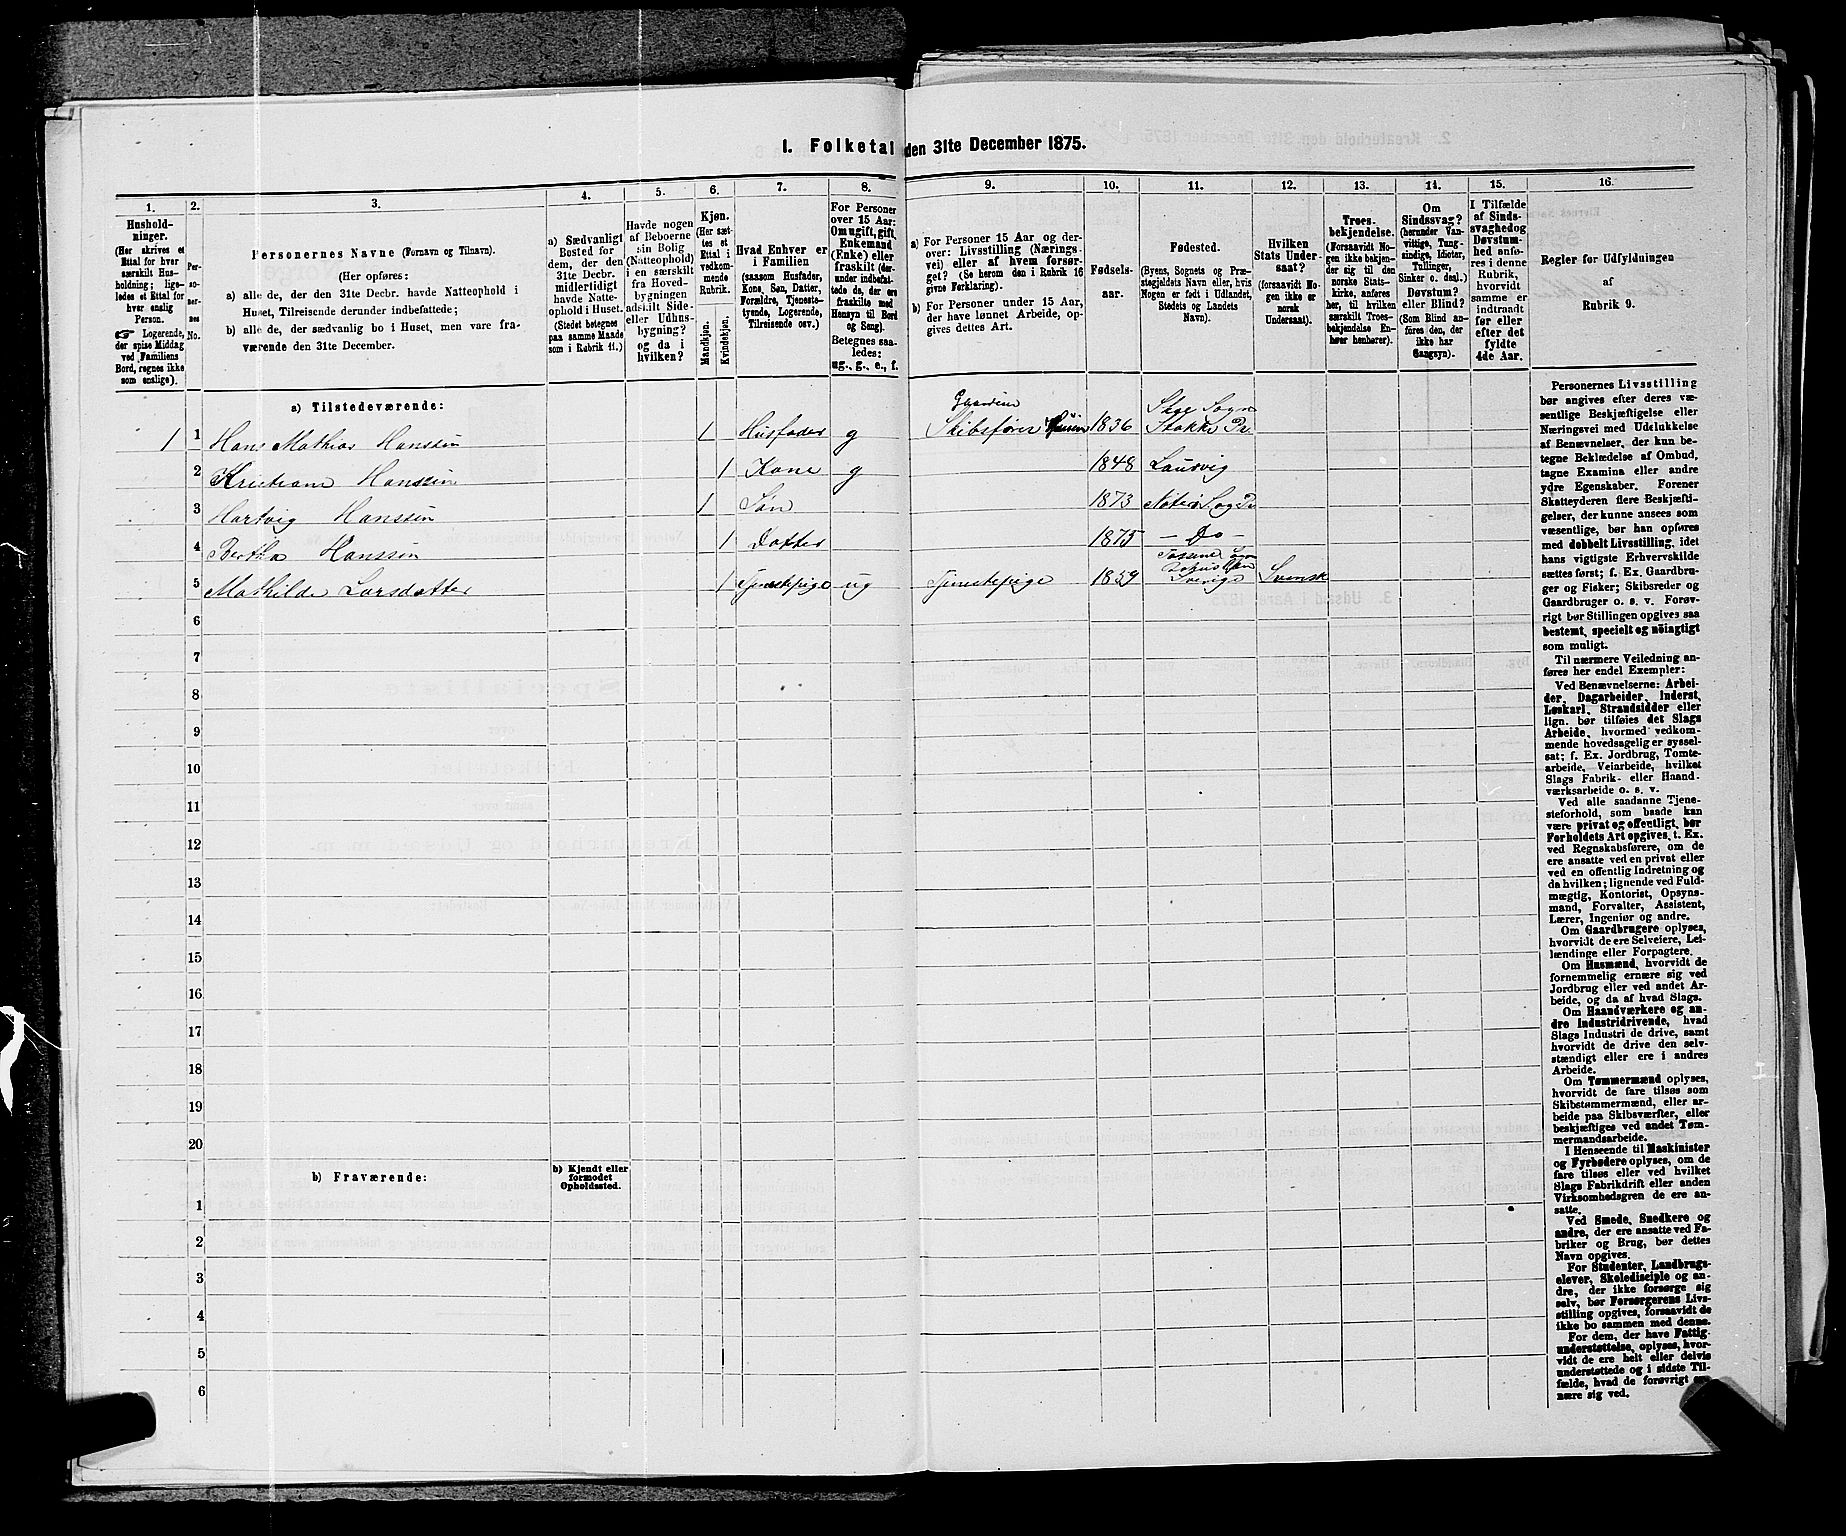 I. Folketal den 31te December 1875.
1. 2. 3. 4. 5. 6. 7. 8. 9. 10. 11. 12. 13. 14. 15. 16.
Hushold-
ninger.
(Her skrives et
Ettal for hver
særskilt Hus-
holdning; lige-
ledes et Ettal for
hver enslig
Person.
☞ Logerende,
der spise Middag
ved Familiens
Bord, regnes ikke
som enslige).
Per-
so-
ner-
nes
No.
Personernes Navne (Fornavn og Tilnavn).
(Her opføres:
a) alle de, der den 31te Decbr. havde Natteophold i
Huset, Tilreisende derunder indbefattede;
b) alle de, der sædvanlig bo i Huset, men vare fra-
værende den 31te December.
a) Sædvanligt
Bosted for
dem, der den
31te Decbr.
midlertidigt
havde Natte-
ophold i Huset.
(Stedet betegnes
paa samme Maade
som i Rubrik 11.)
Havde nogen
af Beboerne
sin Bolig
(Natteophold)
i en særskilt
fra Hoved-
bygningen
adskilt Side-
eller Udhus-
bygning?
og da i
hvilken?
Kjøn.
(Her sæt-
tes et
Ettal i
vedkom-
mende
Rubrik.
Mandkjøn.
Kvindekjøn.
Hvad Enhver er
i Familien
(saasom Husfader,
Kone, Søn, Datter,
Forældre, Tjeneste-
tyende, Logerende,
Tilreisende osv.)
For Personer
over 15 Aar:
Om ugift, gift,
Enkemand
(Enke) eller
fraskilt (der-
under indbefat-
tede de, der ere
fraskilte med
Hensyn til Bord
og Seng).
Betegnes saa-
ledes:
ug., g., e., f.
a) For Personer 15 Aar og der-
over: Livsstilling (Nærings-
vei) eller af hvem forsør-
get? (Se herom den i Rubrik 16
givne Forklaring).
b) For Personer under 15 Aar,
der have lønnet Arbeide, op-
gives dettes Art.
Fødsels-
aar.
Fødested.
(Byens, Sognets og Præ-
stegjeldets Navn eller, hvis
Nogen er født i Udlandet,
Stedets og Landets
Navn).
Hvilken
Stats Under-
saat?
(forsaavidt No-
gen ikke er
norsk
Undersaat).
Troes-
bekjendelse.
(Forsaavidt No-
gen ikke bekjen-
der sig til den
norske Stats-
kirke, anføres
her, til hvilken
særskilt Troes-
bekjendelse En-
hver henhører).
Om
Sindssvag?
(herunder Van-
vittige, Tung-
sindige, Idioter,
Tullinger,
Sinker o. desl.)
Døvstum?
eller Blind?
(Som Blind an-
føres den, der
ikke har
Gangsyn).
I Tilfælde
af Sinds-
svaghed og
Døvstum-
hed anfø-
res i denne
Rubrik,
hvorvidt
samme er
indtraadt
før eller
efter det
fyldte
4de Aar.
Regler for Udfyldningen
af
Rubrik 9.
a) Tilstedeværende:
1 1 Hans Mathias Hanssen 1 Husfader g Gaardeier Skibsfører 1836 Sogn Stokke Pr.
2 Kristiane Hanssen 1 Kone g 1848 Laurvig
3 Hartvig Hanssen 1 Søn 1873 Nøterø S. og Pr.
4 Bertha Hanssen 1 Datter 1875 – Do –
5 Mathilde Larsdatter 1 Tjenestepige ug Tjenestepige 1839 Sverige Svensk
6
7
8
9
10
11
12
13
14
15
16
17
18
19
20
b) Fraværende:
b) Kjendt eller
formodet
Opholdssted.
1
2
3
4
5
6
Personernes Livsstilling
bør angives efter deres væ-
sentlige Beskjæftigelse eller
Næringsvei med Udelukkelse
af Benævnelser, der kun be-
tegne Beklædelse af Ombud,
tagne Examina eller andre
ydre Egenskaber. Forener
Skatteyderen flere Beskjæfti-
gelser, der kunne ansees som
væsentlige, bør han opføres
med dobbelt Livsstilling, idet
hans vigtigste Erhvervskilde
sættes først; f. Ex. Gaardbru-
ger og Fisker; Skibsreder og
Gaardbruger o. s. v. Forøv-
rigt bør Stillingen opgives saa
bestemt, specielt og nöiagtigt
som muligt.
Til nærmere Veiledning an-
føres her endel Exempler:
Ved Benævnelserne: Arbei-
der, Dagarbeider, Inderst,
Løskarl, Strandsidder eller
lign. bør tilføies det Slags
Arbeide, hvormed vedkom-
mende hovedsagelig er syssel-
sat; f. Ex. Jordbrug, Tomte-
arbeide, Veiarbeide, hvilket
Slags Fabrik- eller Haand-
værksarbeide o. s. v.
Ved alle saadanne Tjene-
steforhold, som baade kan
være privat og offentligt, bør
Forholdets Art opgives, t. Ex.
ved Regnskabsførere, om de
ere ansatte ved en privat eller
ved en offentlig Indretning og
da hvilken; lignende ved Fuld-
mægtig, Kontorist, Opsyns-
mand, Forvalter, Assistent,
Lærer, Ingeniør og andre.
Om Gaardbrugere oplyses,
hvorvidt de ere Selveiere, Lei-
lændinge eller Forpagtere.
Om Husmænd, hvorvidt de
fornemmelig ernære sig ved
Jordbrug eller ved andet Ar-
beide, og da af hvad Slags.
Om Haandværkere og an-
dre Industridrivende, hvad
Slags Industri de drive, samt
hvorvidt de drive den selv-
stændigt eller ere i andres
Arbeide.
Om Tømmermænd oplyses,
hvorvidt de fare tilsøs som
Skibstømmermænd, eller ar-
beide paa Skibsværfter, eller
beskjæftiges ved andet Tøm-
mermandsarbeide.
I Henseende til Maskinister
og Fyrbødere oplyses, om de
fare tilsøs eller ved hvilket
Slags Fabrikdrift eller anden
Virksomhedsgren de ere an-
satte.
Ved Smede, Snedkere og
andre, der ere ansatte ved Fa-
briker og Brug, bør dettes
Navn opgives.
For Studenter, Landbrugs-
elever, Skoledisciple og an-
dre, der ikke forsørge sig
selv, bør Forsørgerens Livs-
stilling opgives, forsaavidt de
ikke bo sammen med denne.
For dem, der have Fattig-
understøttelse, oplyses, hvor-
vidt de ere helt eller delvis
understøttede og i sidste Til-
fælde, hvad de forøvrigt er-
nære sig ved.